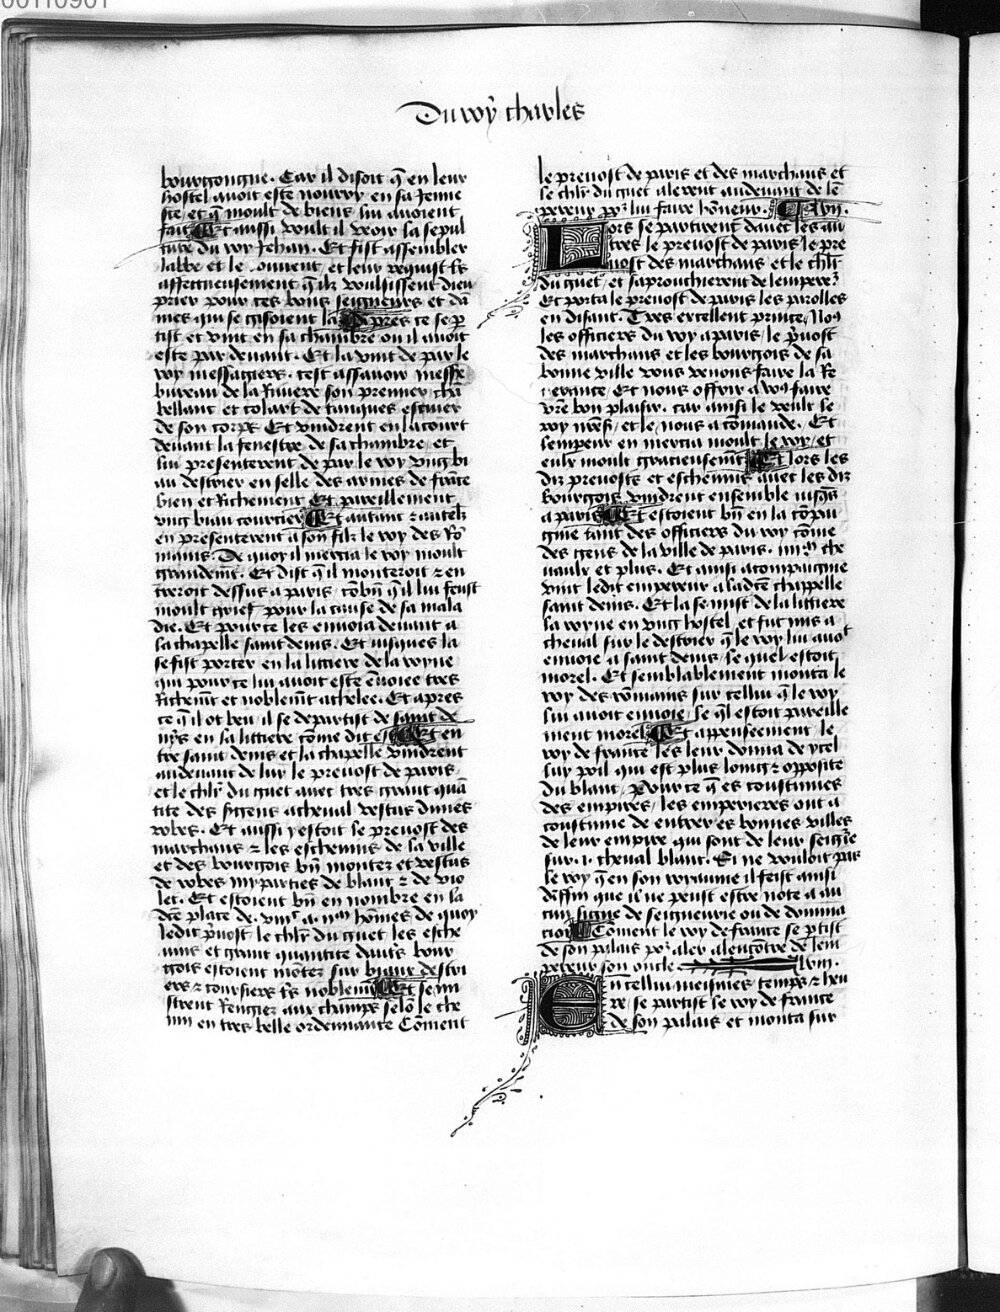 00110901
Du roy charles
bourgongne. Car il disoit q̃ en leur
hostel auoit este nourry en sa Jenne
sse et q̃ moult de biens lui auoient
fait Et aussi voult il veoir la sepul
ture du roy Jehan. Et fist assembler
labbe et le couuent et leur requist tͥs
affectueusement q̃ ilz voulsissent dieu
prier pour ces bons seigneurs et da
mes qui se gisoient la Apres ce se p̃
tist et vint en sa chambre ou il auoit
este par deuant. Et la vint de par le
roy messagiers. cest assauoir messͬe
bureau de la Riuiere son premier cha
bellant et colart de tanques escuier
de son corps Et vindrent en la court
deuant la fenestre de sa chambre et
lui presenterent de par le roy vng bi
au destrier en selle des armes de frãce
bien et Richement Et pareillement
vng biau coursier Et autant et autelz
en presenterent a son filz le roy des Ro
mains. De quoy il mercia le roy moult
grandemt̃. Et dist q̃ il monteroit et en
treroit dessus a paris cõbn̄ q̃ il lui feust
moult grief pour la cause de sa mala
die. Et pour ce les enuoia deuant a
la chapelle saint denis. Et iusques la
se fist porter en la littiere de la royne
qui pour ce lui auoit este enuoiee tres
Richemt̃ et noblemt̃ athelee. Et apres
ce q̃ il ot beu il se departist de saint de
nys en sa littiere cõme dit est Et en
tre saint denis et la chapelle vindrent
audeuant de luy le preuost de paris
et le chl̃r du guet auec tres grant quã
tite des sergens acheual vestus dunes
robes. Et aussi y estoit le preuost des
marchans et les escheuins de la ville
et des bourgois bn̄ montez et vestus
de robes mypartieS de blanc et de vio
let. Et estoient bn̄ en nombre en la
dc̃e place de. hõmes de quoy
ledit p̃uost le chl̃r du guet les esche
uins et grant quantite dautͬs bour
gois estoient mõtez sur biaux destri
ers et coursiers tͥs noblemt̃ Et se mi
strent Rengiez aux champs selõ le che
min en tres belle ordennance Cõment
le preuost de paris et des marchans et
le chl̃r du guet alerent audeuant de lẽ
pereur poͬ lui faire hõneur.
Lors se partirent dauec les au
tres le preuost de paris le pre
uost des marchans et le chl̃r
du guet et saprouchierent de lempereͬ
Et porta le preuost de paris les parolles
en disant. Tres excellent prince, Noꝰ
les officiers du roy a paris, le p̃uost
des marchans et les bourgois de sa
bonne ville vous venons faire la Re
uerance Et nous offrir a voꝰ faire
vr̃e bon plaisir. car ainsi le veult le
roy nr̃e sͬ et le nous a cõmande. Et
lempeur en mercia moult le roy et
eulx moult gracieusemt̃ Et lors les
diz preuosts et escheuins auec les diz
Bourgois vindrent ensemble iusqs̃
a paris Et estoient bn̄ en la cõpai
gnie tant des officiers du roy cõme
des gens de la ville de paris. che
uaulx et plus. Et ainsi acompaigne
vint ledit empereur a ladc̃te chappelle
saint denis. Et la se mist de la littiere
la royne en vng hostel, et fut mis a
cheual sur le destrier q̃ le roy lui auoͭ
enuoie a saint denis, le quel estoit
morel. Et semblablement monta le
roy des rõmains sur cellui q̃ le roy
lui auoit enuoie, le ql̃ estoit pareille
ment morel Et apenseement le
roy de france les leur donna de ycel
luy poil qui est plus loing et opposite
du blanc, Pour ce q̃ es coustumes
des empires, les emperieres ont a
coustume de entrer es bonnes villes
de leur empire qui sont de leur seigñe
sur .i. cheual blanc. Si ne vouloit pas
le roy q̃ en son royaume il feist ainsi
affin que il ne peust estre note a au
cun signe de seigneurie ou de domina
cion Cõment le roy de france se p̃tist
de son palais poͬ aler alencõtre de lem
pereur son oncle lviii.
En cellui meismes temps et heu
re se partist le roy de france
de son palais et monta sur